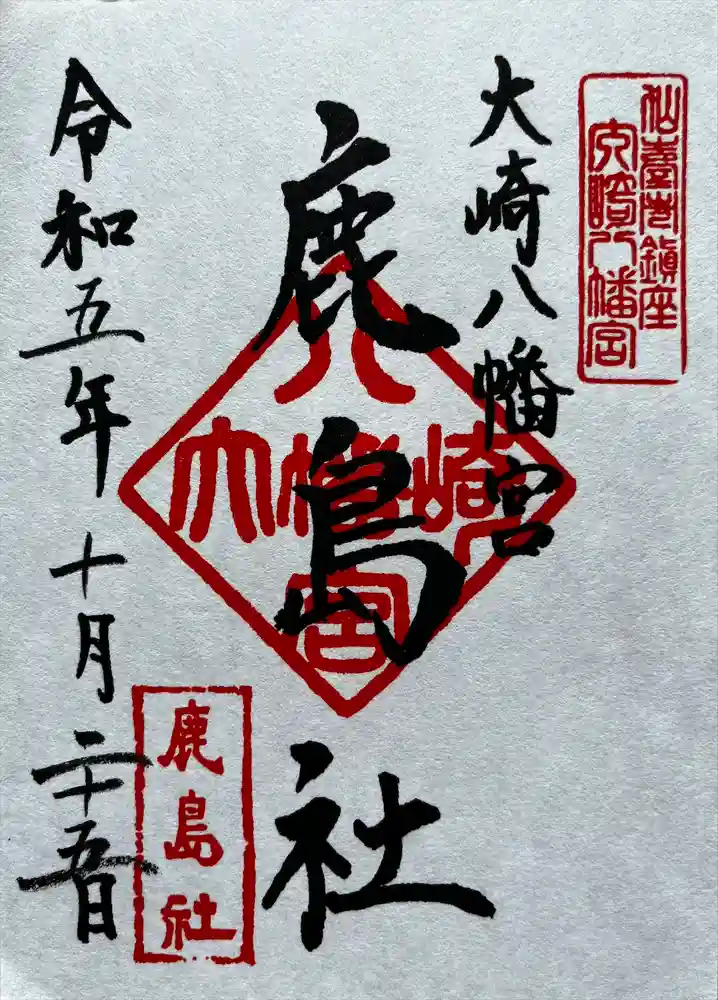 仙臺市鎮座
大崎八幡宮
大崎八幡宮
鹿島社
八
大幡崎
宮
鹿島社
令和五年十月二十五日